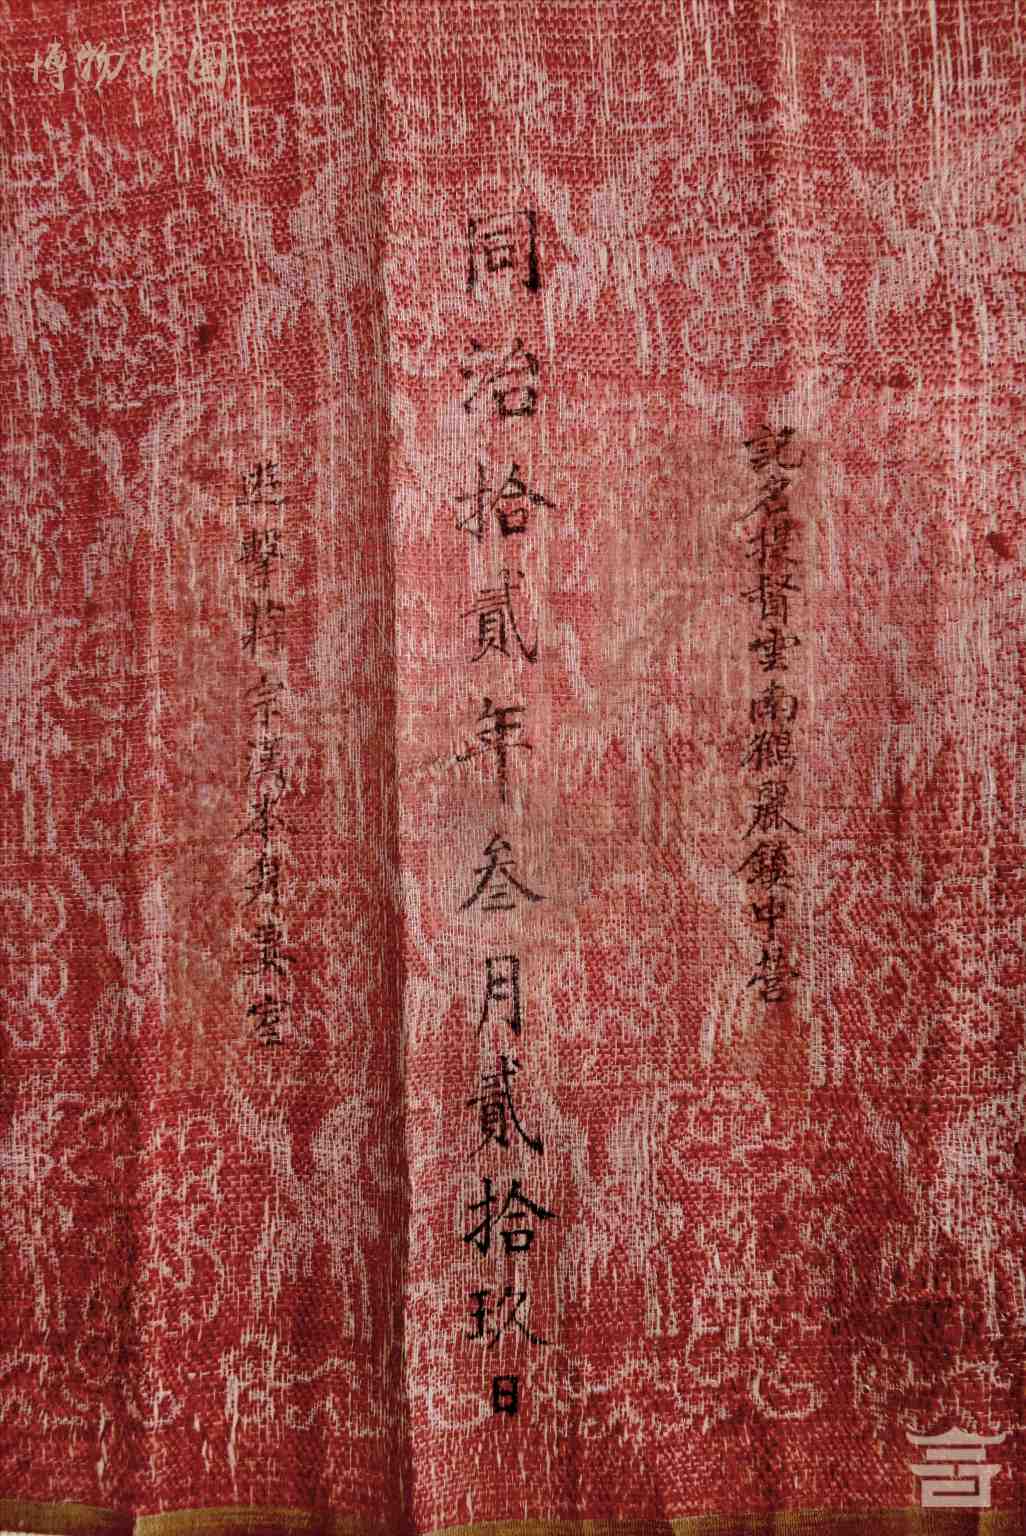 博物中国
記名提督雲南鶴麗鎮中營
同治拾貳年叁月貳拾玖日
遊擊蔣宗漢本身妻室